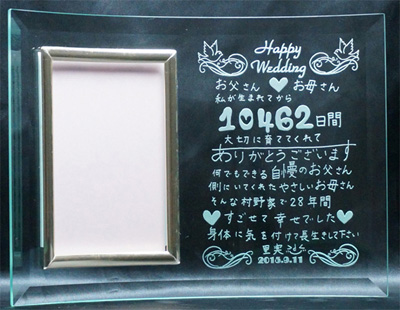 Happy
Wedding
お父さん♥お母さん
私が生まれてから
10462日間
大切に育ててくれて
ありがとうございます
何でもできる自慢のお父さん
側にいてくれたやさしいお母さん
そんな村野家で28年間
♥すごせて幸せでした♥
身体に気を付けて長生きして下さい